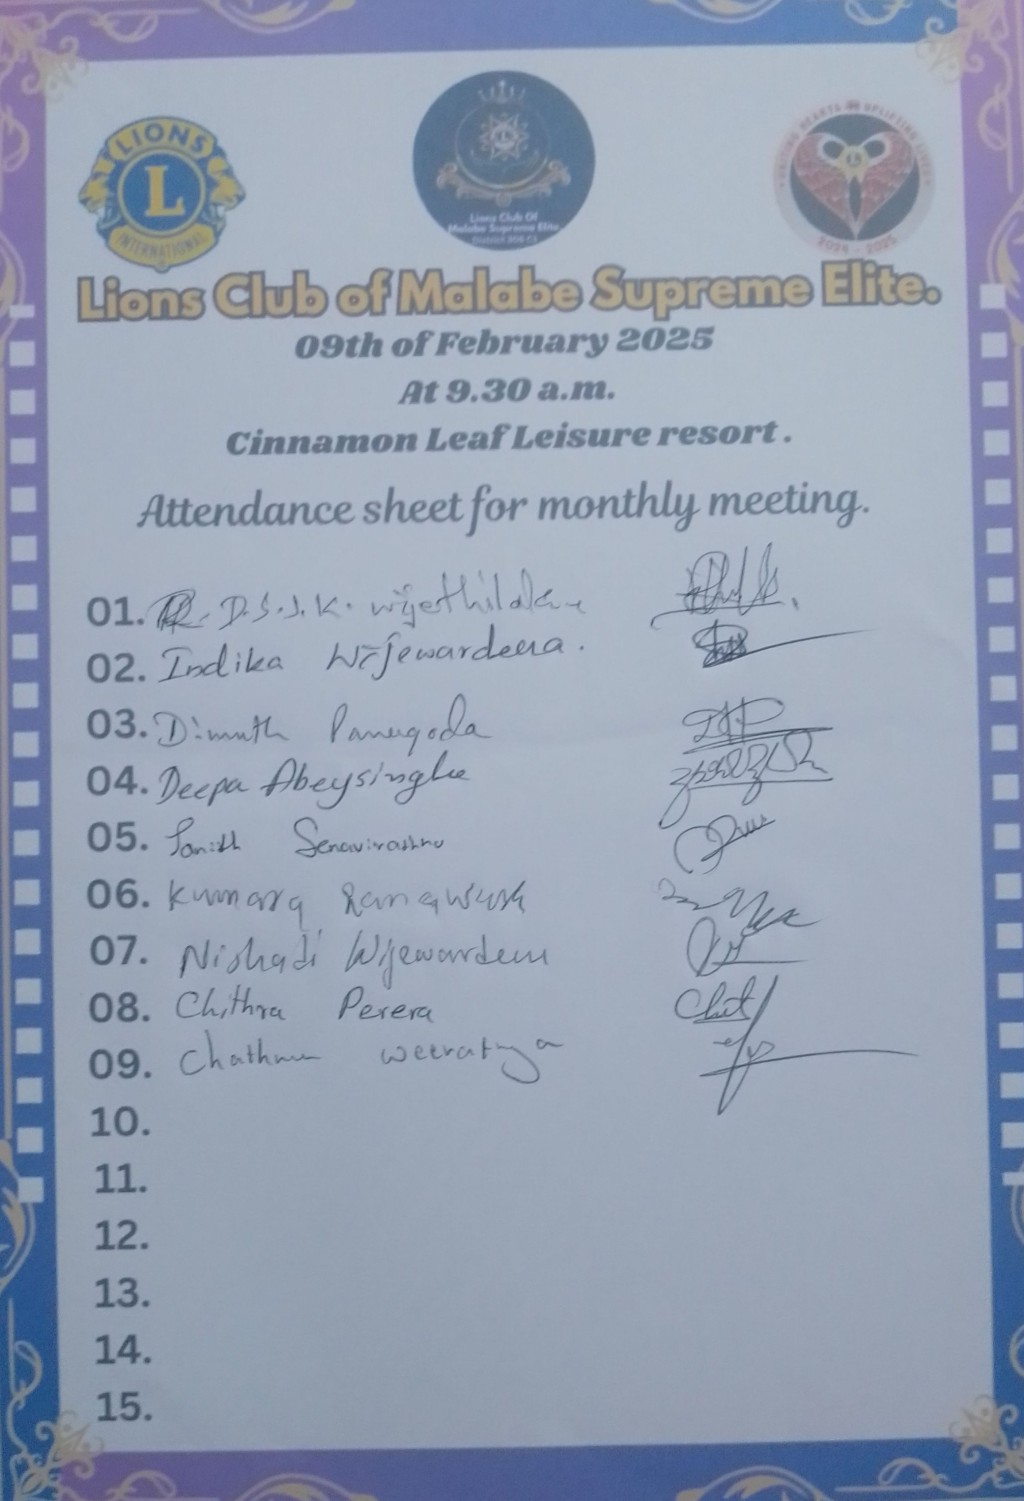 LIONS
L
INTERNATIONAL
Lions Club Of
Malabe Supreme Elite
District 306 C1
HEARTS UPLIFTING
L
2024 - 2025
Lions Club of Malabe Supreme Elite.
09th of February 2025
At 9.30 a.m.
Cinnamon Leaf Leisure resort.
Attendance sheet for monthly meeting.
01. R. D.S.J.K.
02. Indika Wijewardena.
03. Dimuth Panugoda
04. Deepa Abeysinghe
05. Senavirathne
06. Kumara Ranawaka
07. Nishadi Wijewardena
08. Chithra Perera Chit
09.
10.
11.
12.
13.
14.
15.